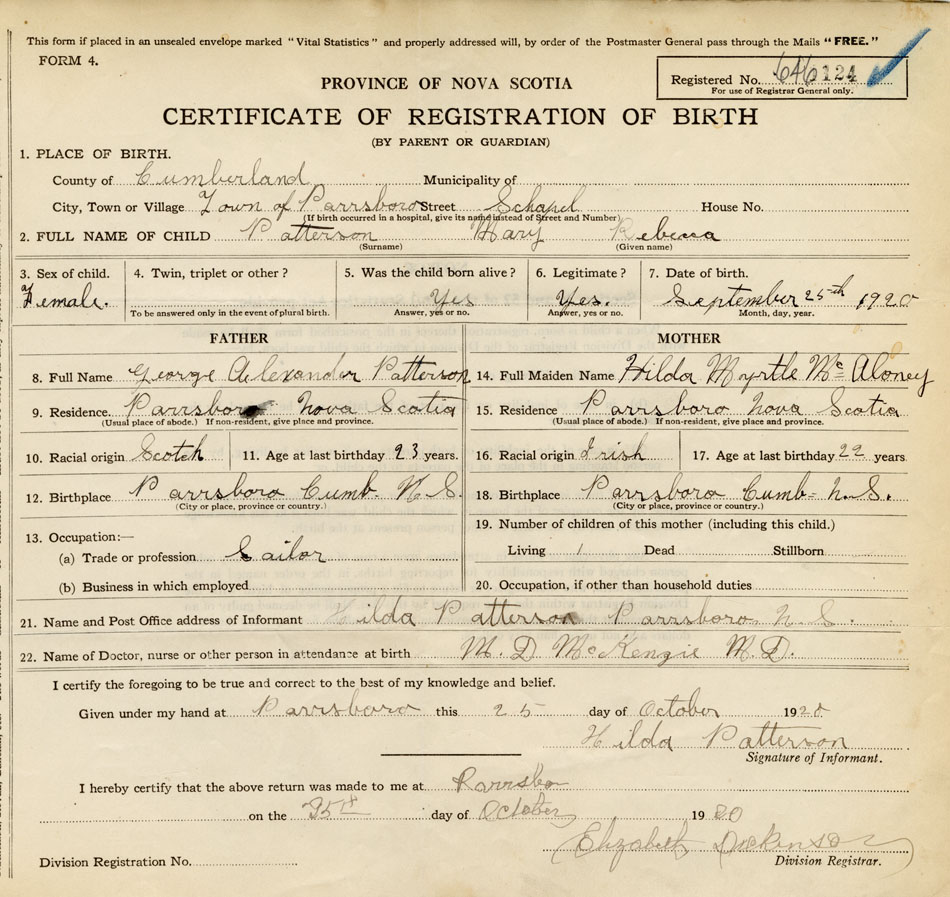 This form if placed in an unsealed envelope marked "Vital Statistics" and properly addressed will, by order of the Postmaster General pass through the Mails "FREE."
FORM 4.
Registered No. 646124
For use of Registrar General only.
PROVINCE OF NOVA SCOTIA
CERTIFICATE OF REGISTRATION OF BIRTH
(BY PARENT OR GUARDIAN)
1. PLACE OF BIRTH.
County of Cumberland Municipality of
City, Town or Village Town of Parrsboro Street Schapel House No.
(If birth occurred in a hospital, give its name instead of Street and Number)
2. FULL NAME OF CHILD Patterson Mary Rebecca
(Surname) (Given name)
3. Sex of child. 4. Twin, triplet or other? 5. Was the child born alive? 6. Legitimate? 7. Date of birth.
Female. Yes Yes. September 25th 1920
To be answered only in the event of plural birth. Answer, yes or no. Answer, yes or no. Month, day, year.
FATHER MOTHER
8. Full Name George Alexander Patterson 14. Full Maiden Name Hilda Myrtle Mc Aloney
9. Residence. Parrsboro Nova Scotia 15. Residence Parrsboro Nova Scotia
(Usual place of abode.) If non-resident, give place and province. (Usual place of abode.) If non-resident, give place and province.
10. Racial origin Scotch 11. Age at last birthday 23 years. 16. Racial origin Irish 17. Age at last birthday 22 years
12. Birthplace Parrsboro Cumb. N.S. 18. Birthplace Parrsboro Cumb- N.S.
(City or place, province or country.) (City or place, province or country.)
13. Occupation:— 19. Number of children of this mother (including this child.)
(a) Trade or profession Sailor Living 1 Dead Stillborn
(b) Business in which employed 20. Occupation, if other than household duties
21. Name and Post Office address of Informant Hilda Patterson Parrsboro N.S.
22. Name of Doctor, nurse or other person in attendance at birth M. D McKenzie M.D.
I certify the foregoing to be true and correct to the best of my knowledge and belief.
Given under my hand at Parrsboro this 25 day of October 1920
Hilda Patterson
Signature of Informant.
I hereby certify that the above return was made to me at Parrsbo
on the 25th day of October 1920
Elizabeth Dickinson
Division Registration No. Division Registrar.